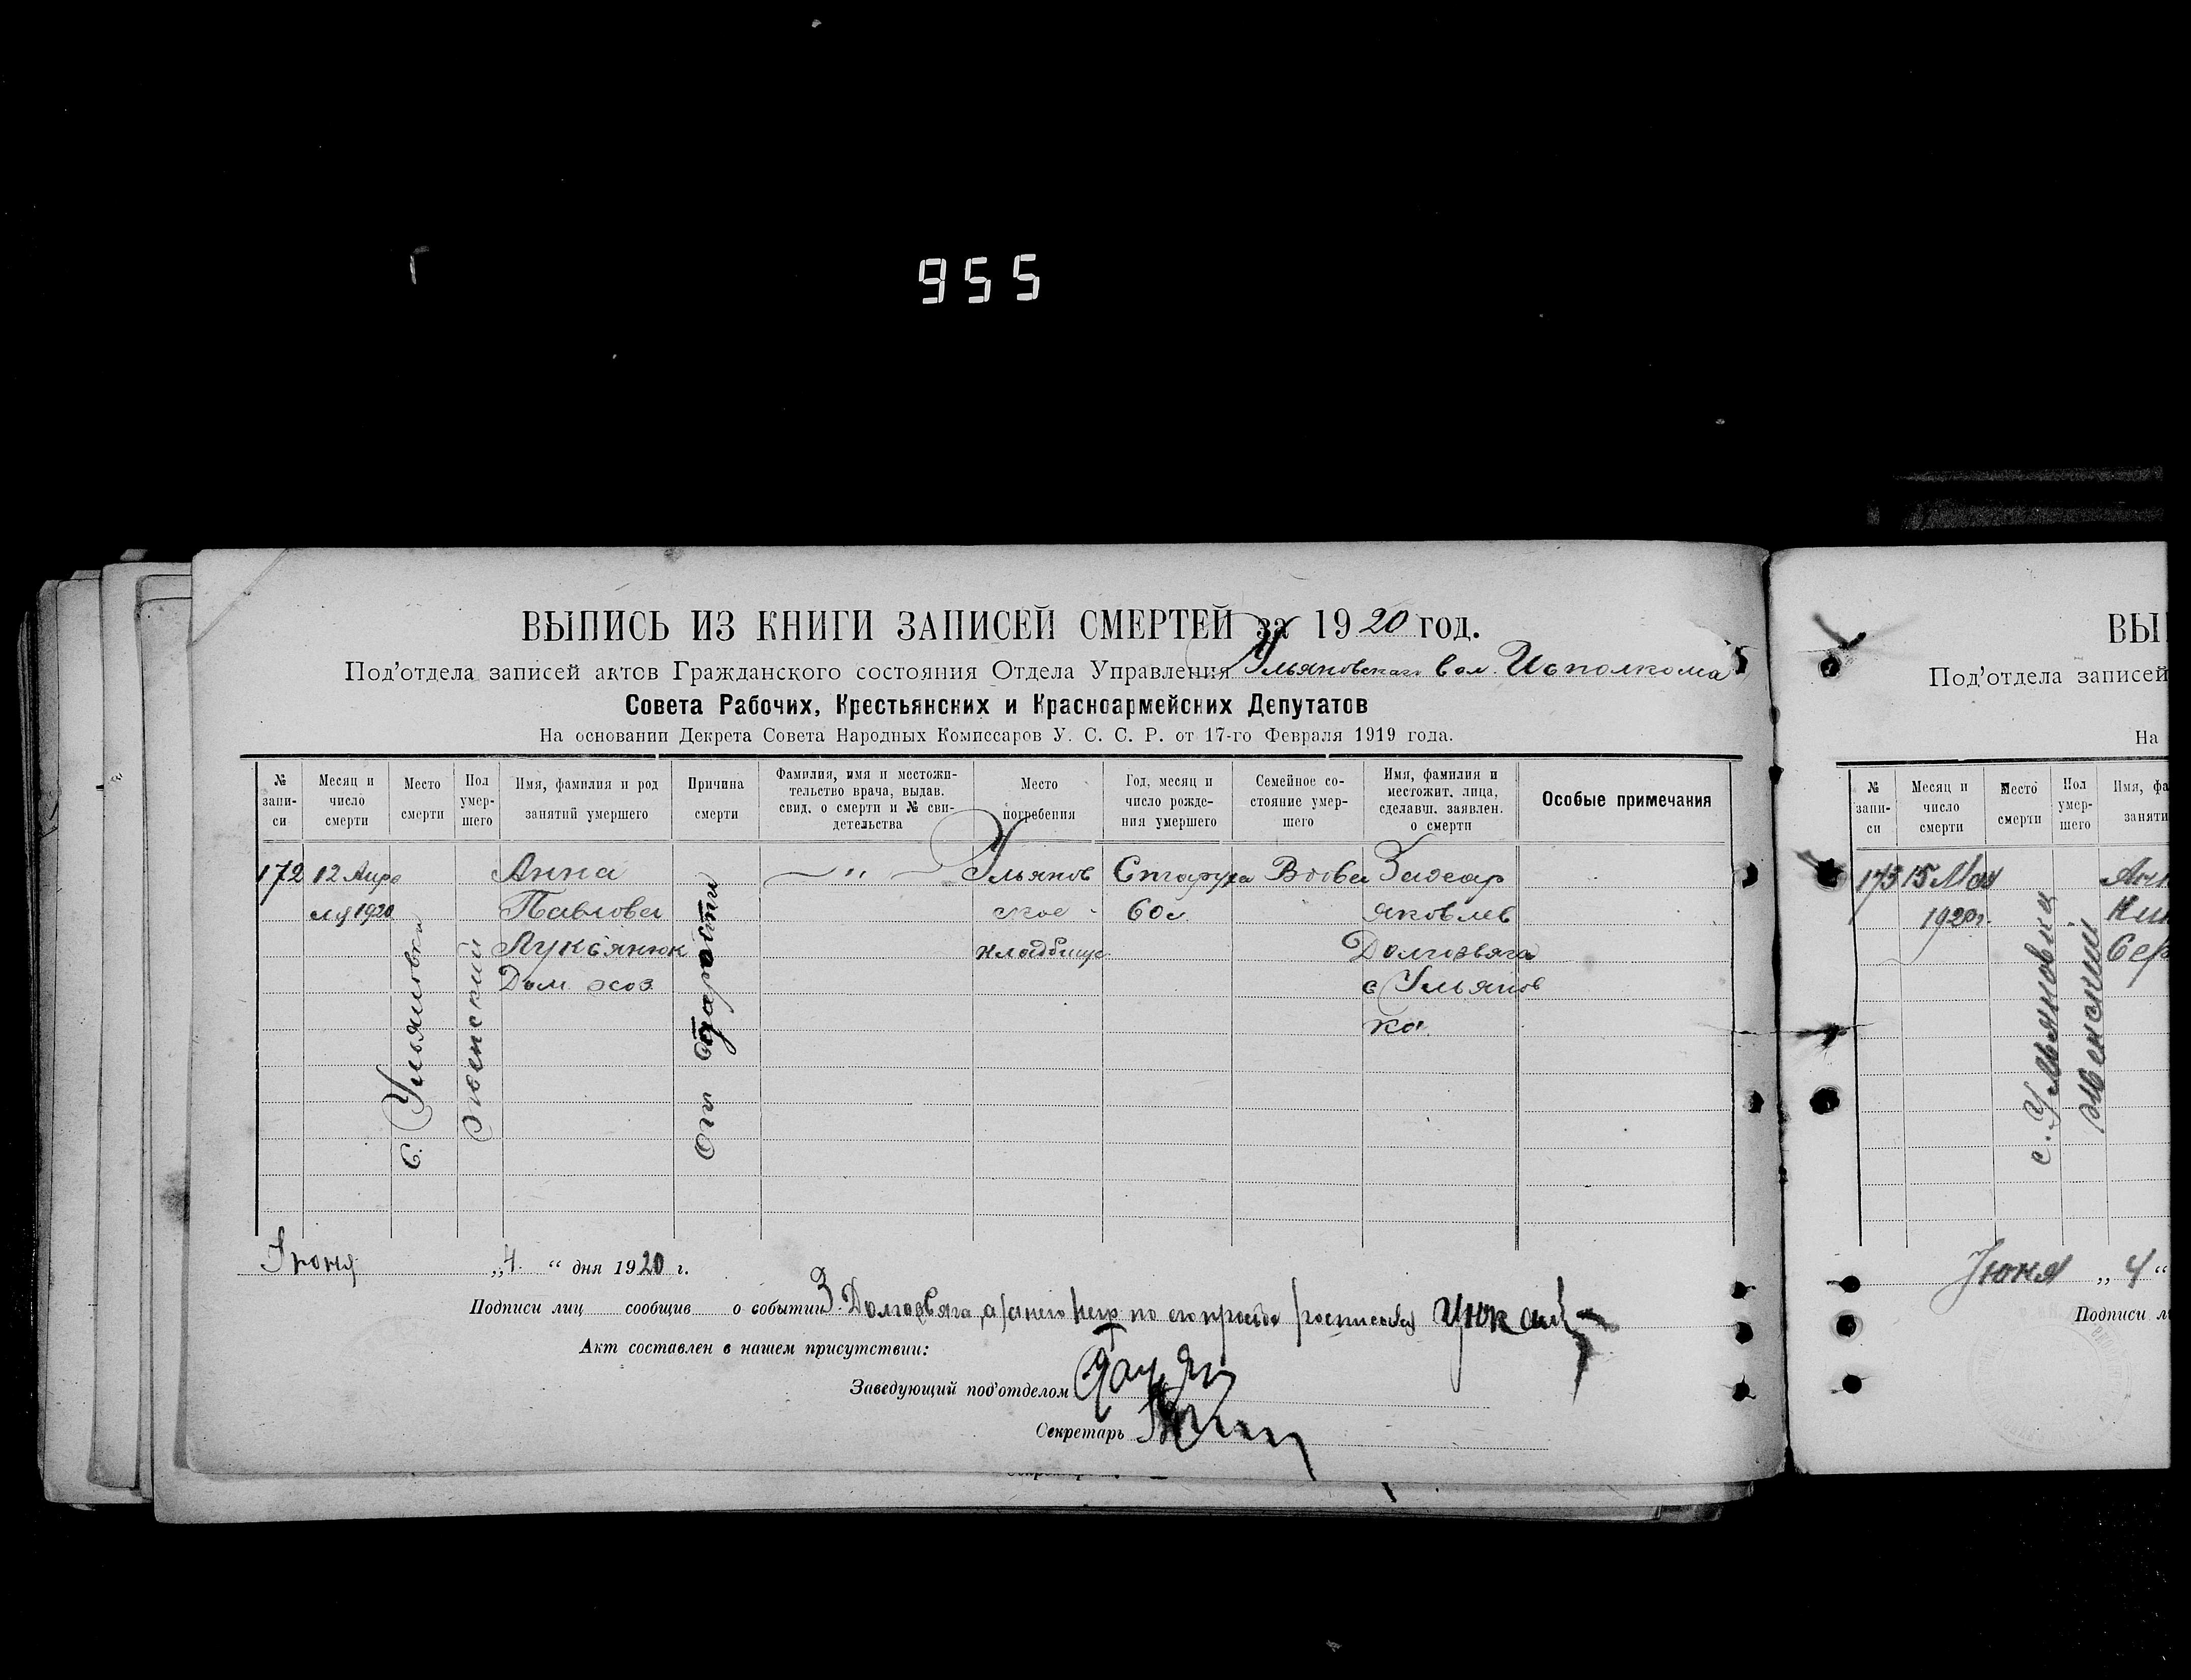 955
ВЫПИСЬ ИЗ КНИГИ ЗАПИСЕЙ СМЕРТЕЙ за 1920 год.
Под'отдела записей актов Гражданского состояния Отдела Управления Ульяновскаго вол. Исполкома
Совета Рабочих, Крестьянских и Красноармейских Депутатов
На основании Декрета Совета Народных Комиссаров У. С. С. Р. от 17-го Февраля 1919 года.
№ запи-
си
Месяц и
число
смерти
Место
смерти
Пол
умер-
шего
Имя, фамилия и род
занятий умершего
Причина
смерти
Фамилия, имя и местожи-
тельство врача, выдав.
свид. о смерти и № сви-
детельства
Место
погребения
Год, месяц и
число рожде-
ния умершего
Семейное со-
стояние умер-
шего
Имя, фамилия и
местожит. лица,
сделавш. заявлен.
о смерти
Особые примечания
172
12 Апре
ля 1920
с. Ульяновка
Женский
Анна
Павлова
Лукьянюк
Дом хоз
От старости
"
Ульянов
ское
кладбище
Старуха
60
Вдова
Яковлев
Долговяга
с Ульянов
ка
Июня „4“ дня 1920 г.
Подписи лиц сообщив о событии З. Долговяга, а его по его просьбе
Акт составлен в нашем присутствии:
Заведующий под'отделом
Секретарь
ВЫ
Под'отдела записей
На
№
запи-
си
Месяц и
число
смерти
Место
смерти
Пол
умер-
шего
Имя, фа
заняти
173
15 Мая
1920г.
с. Ульяновка
женский
Июня „4“
Подписи л